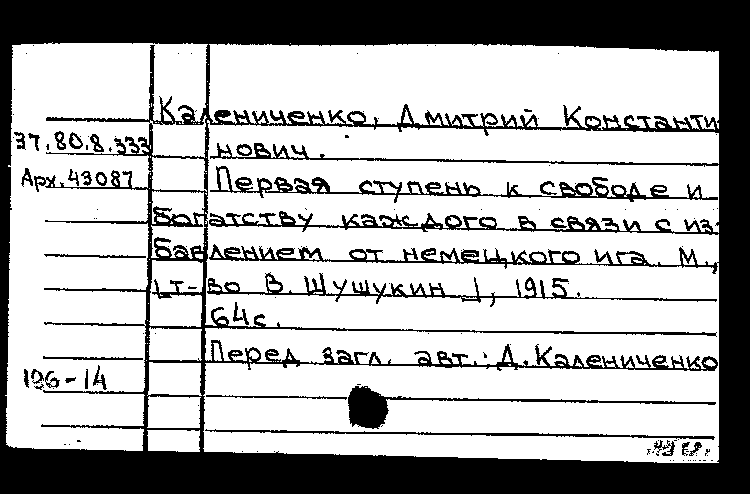 Калениченко, Дмитрий Константи
37.80.8.333 нович.
Арх.43087 Первая ступень к свободе и
богатству каждого в связи с из-
бавлением от немецкого ига. М.,
[т-во В. Шушукин], 1915.
64с.
Перед загл. авт.: Д.Калениченко
196-14